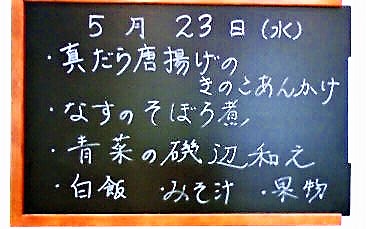 5月23日(水)
・真だら唐揚げの
きのこあんかけ
・なすのそぼろ煮
・青菜の磯辺和え
・白飯 ・みそ汁 ・果物